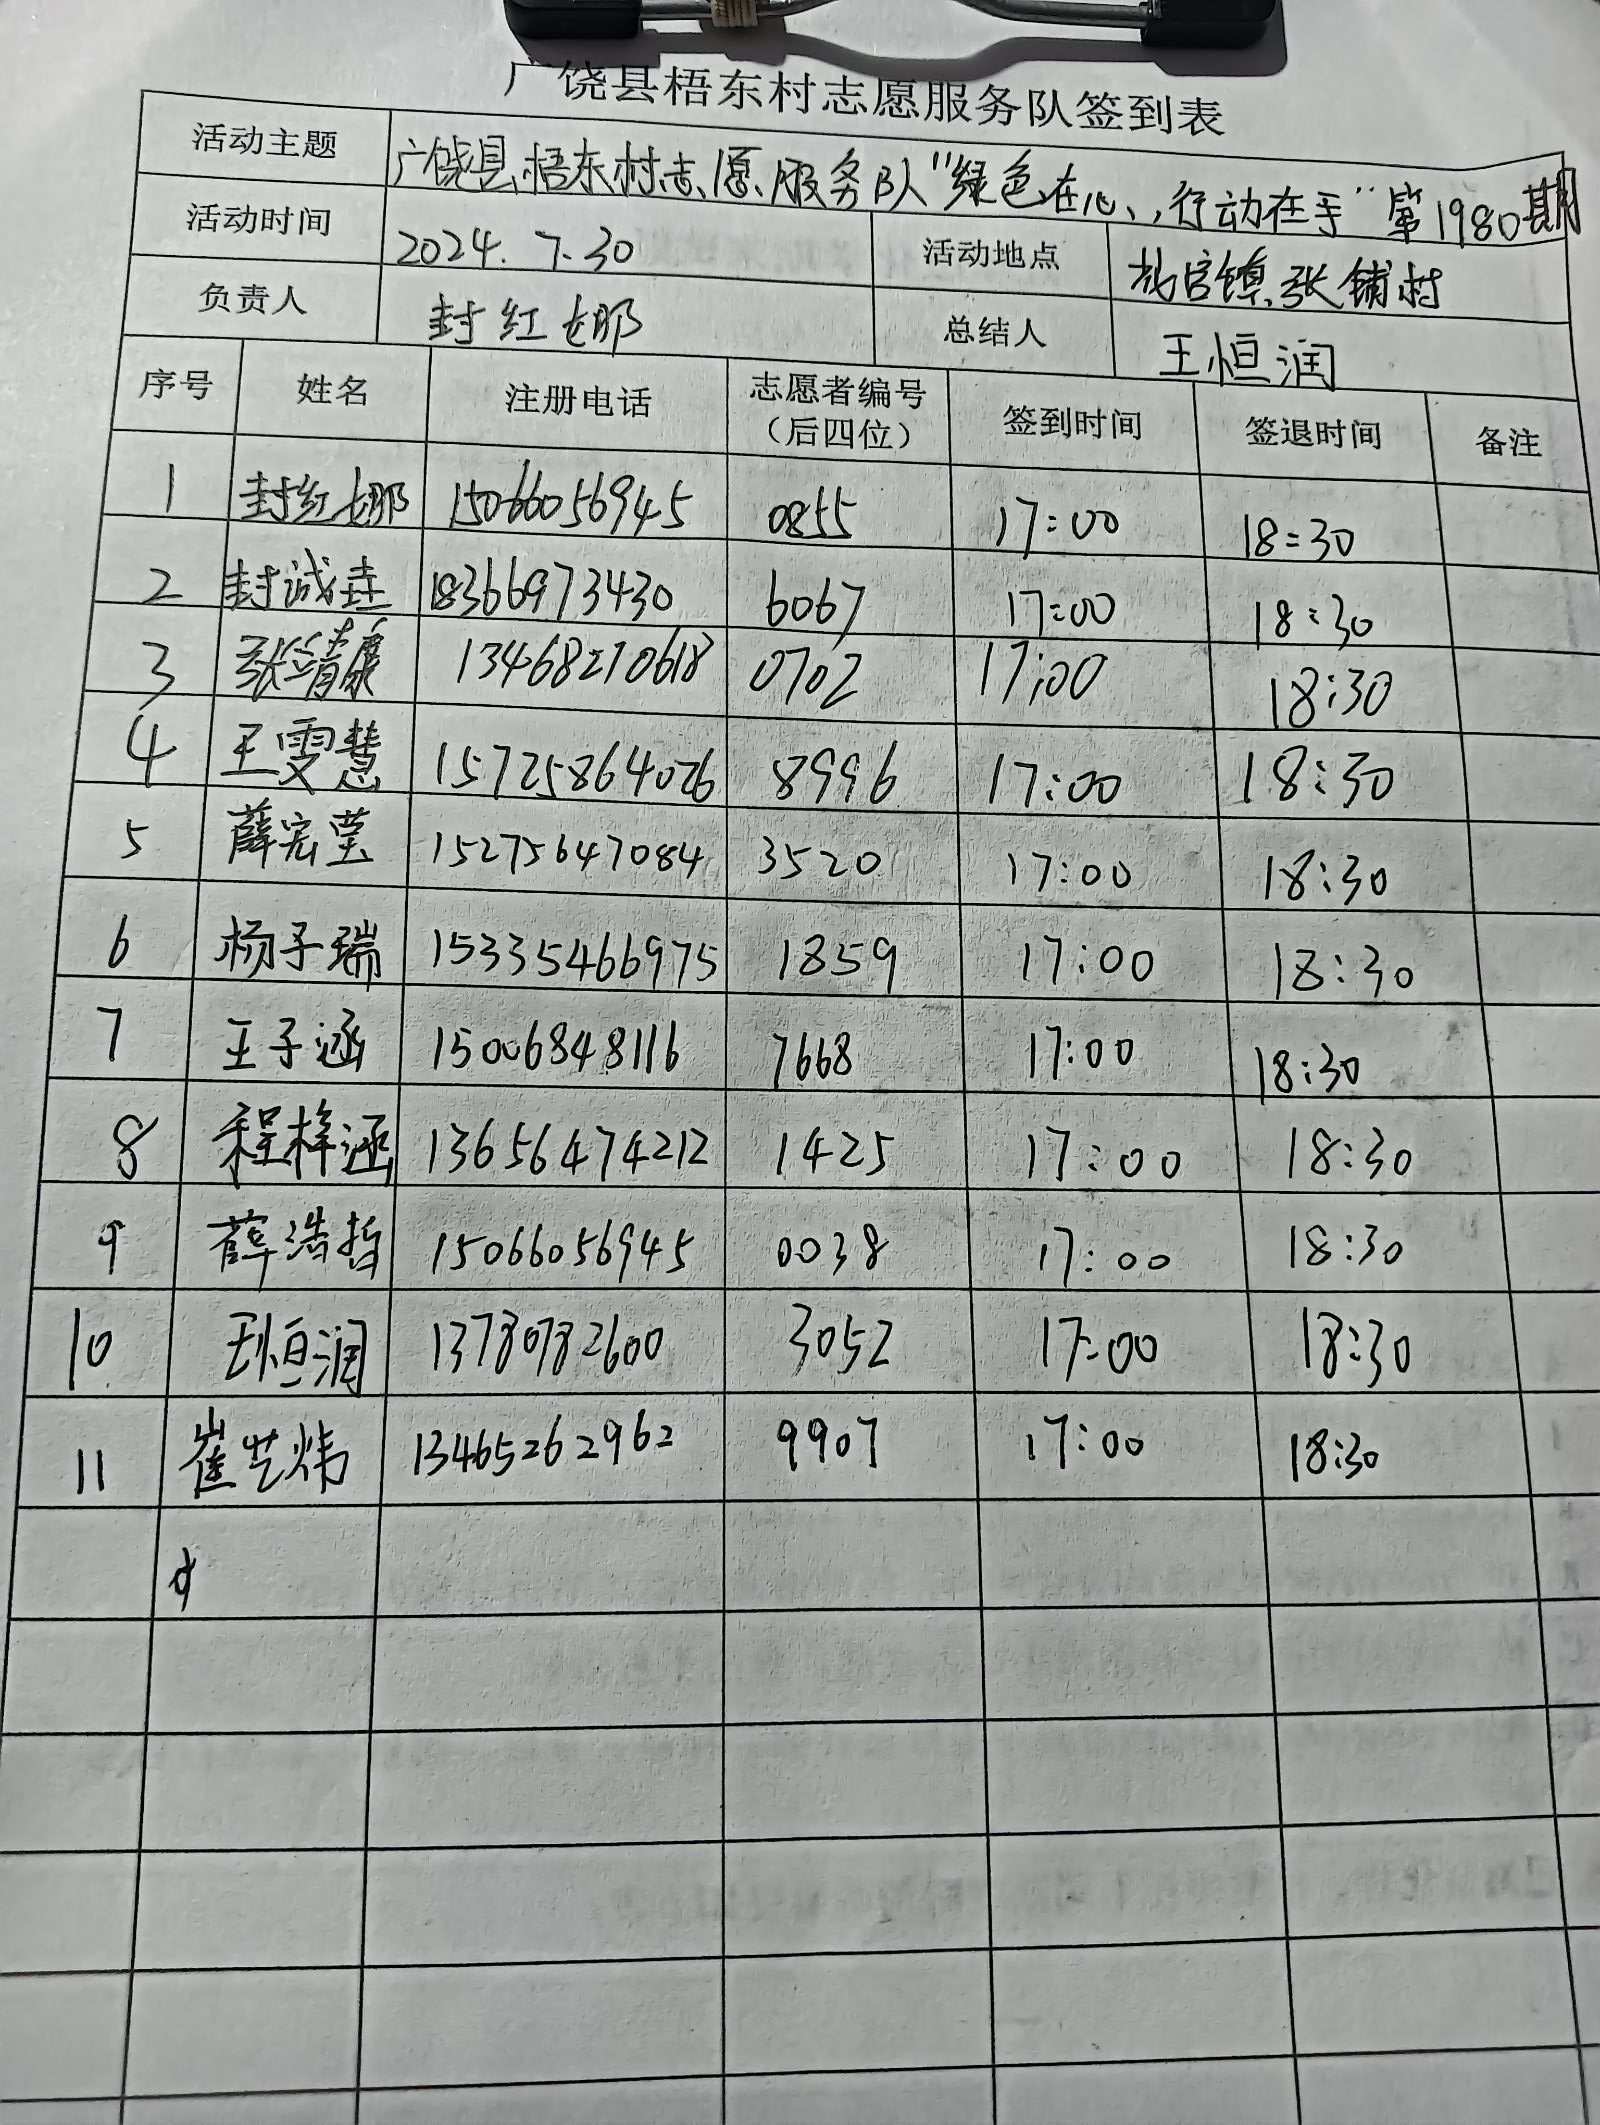 广饶县梧东村志愿服务队签到表
活动主题 广饶县梧东村志愿服务队“绿色在心,行动在手”第1980期
活动时间 2024.7.30 活动地点 官镇张铺村
负责人 封红娜 总结人 王恒润
序号 姓名 注册电话 志愿者编号（后四位） 签到时间 签退时间 备注
1 封红娜 15066056945 0855 17:00 18:30
2 封诚 18366973430 6067 17:00 18:30
3 张靖康 13468210618 0702 17:00 18:30
4 王雯慧 15725864026 8996 17:00 18:30
5 薛宏莹 15275647084 3520 17:00 18:30
6 杨子瑞 15335466975 1859 17:00 18:30
7 王子涵 15006848116 7668 17:00 18:30
8 程梓涵 13656474212 1425 17:00 18:30
9 薛浩哲 15066056945 0038 17:00 18:30
10 王恒润 13780782600 3052 17:00 18:30
11 崔艺炜 13465262962 9907 17:00 18:30